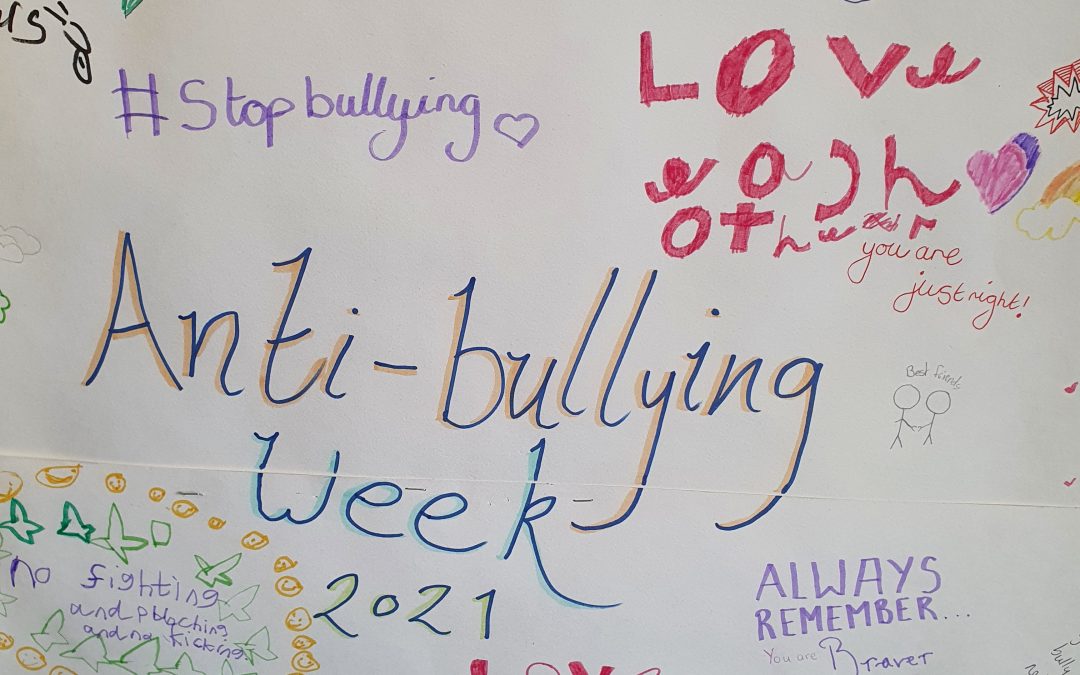 #Stop bullying
Love
each
other
you are
just right!
Anti-bullying
Week
2021
Best friends
no fighting
and no kicking.
ALWAYS
REMEMBER...
You are Braver